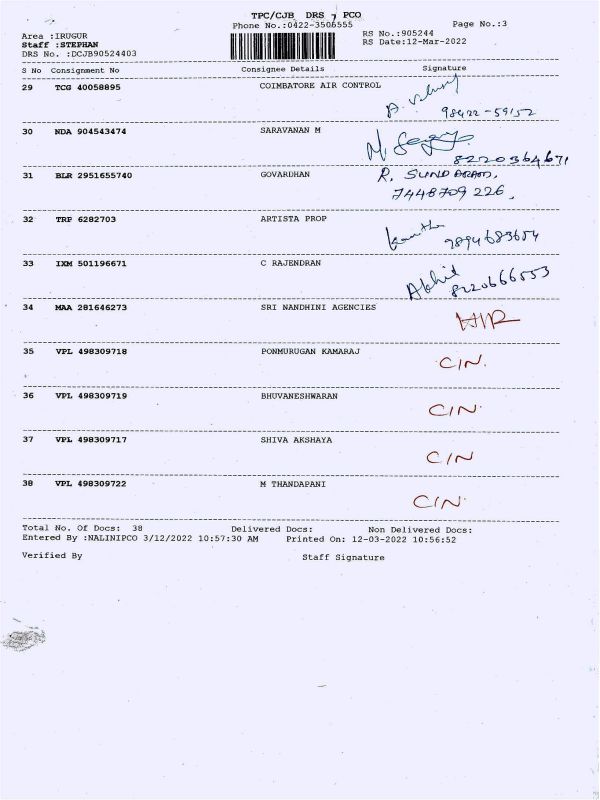 TPC/CJB DRS 7 PCO
Phone No.:0422-3506555
Page No.:3
Area :IRUGUR
RS No.:905244
Staff :STEPHAN
RS Date:12-Mar-2022
DRS No. :DCJB90524403
S No Consignment No Consignee Details Signature
29 TCG 40058895 COIMBATORE AIR CONTROL
98422-59152
30 NDA 904543474 SARAVANAN M
8220364671
31 BLR 2951655740 GOVARDHAN R. SUNDARAM,
7448709226,
32 TRP 6282703 ARTISTA PROP
9894683654
33 IXM 501196671 C RAJENDRAN Abhil
8220666553
34 MAA 281646273 SRI NANDHINI AGENCIES
35 VPL 498309718 PONMURUGAN KAMARAJ C/N.
36 VPL 498309719 BHUVANESHWARAN C/N.
37 VPL 498309717 SHIVA AKSHAYA C/N
38 VPL 498309722 M THANDAPANI C/N.
Total No. Of Docs: 38 Delivered Docs: Non Delivered Docs:
Entered By :NALINIPCO 3/12/2022 10:57:30 AM Printed On: 12-03-2022 10:56:52
Verified By Staff Signature